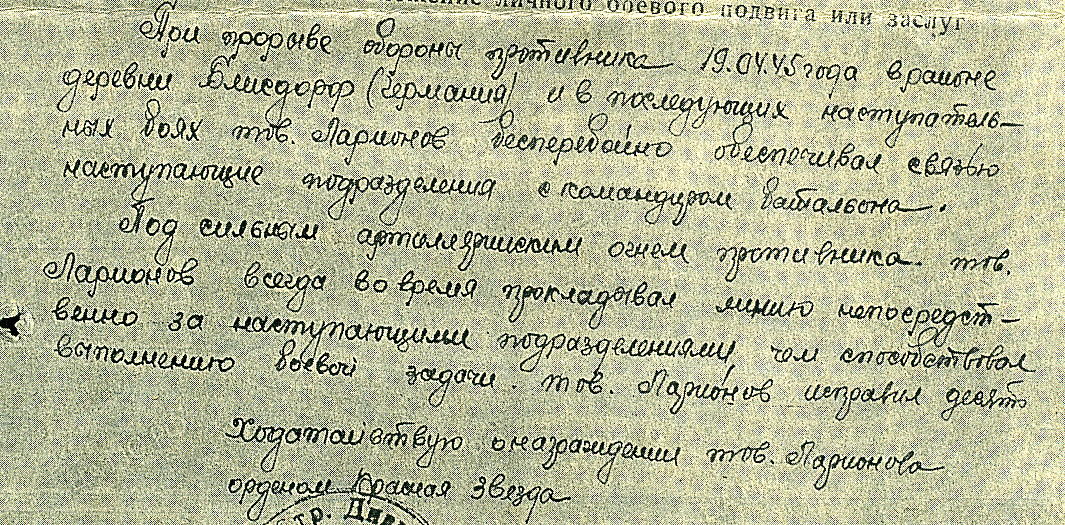 личного боевого подвига или заслуг
При прорыве обороны противника 19.04.45 года в районе
деревни Блисдорф (Германия) и в последующих наступатель-
ных боях тов. Ларионов бесперебойно обеспечивал связью
наступающие подразделения с командиром батальона.
Под сильным артиллерийским огнем противника тов.
Ларионов всегда во время прокладывал линию непосредст-
венно за наступающими подразделениями, чем способствовал
выполнению боевой задачи. тов. Ларионов исправил десять
Ходатайствую о награждении тов. Ларионова
орденом Красная Звезда